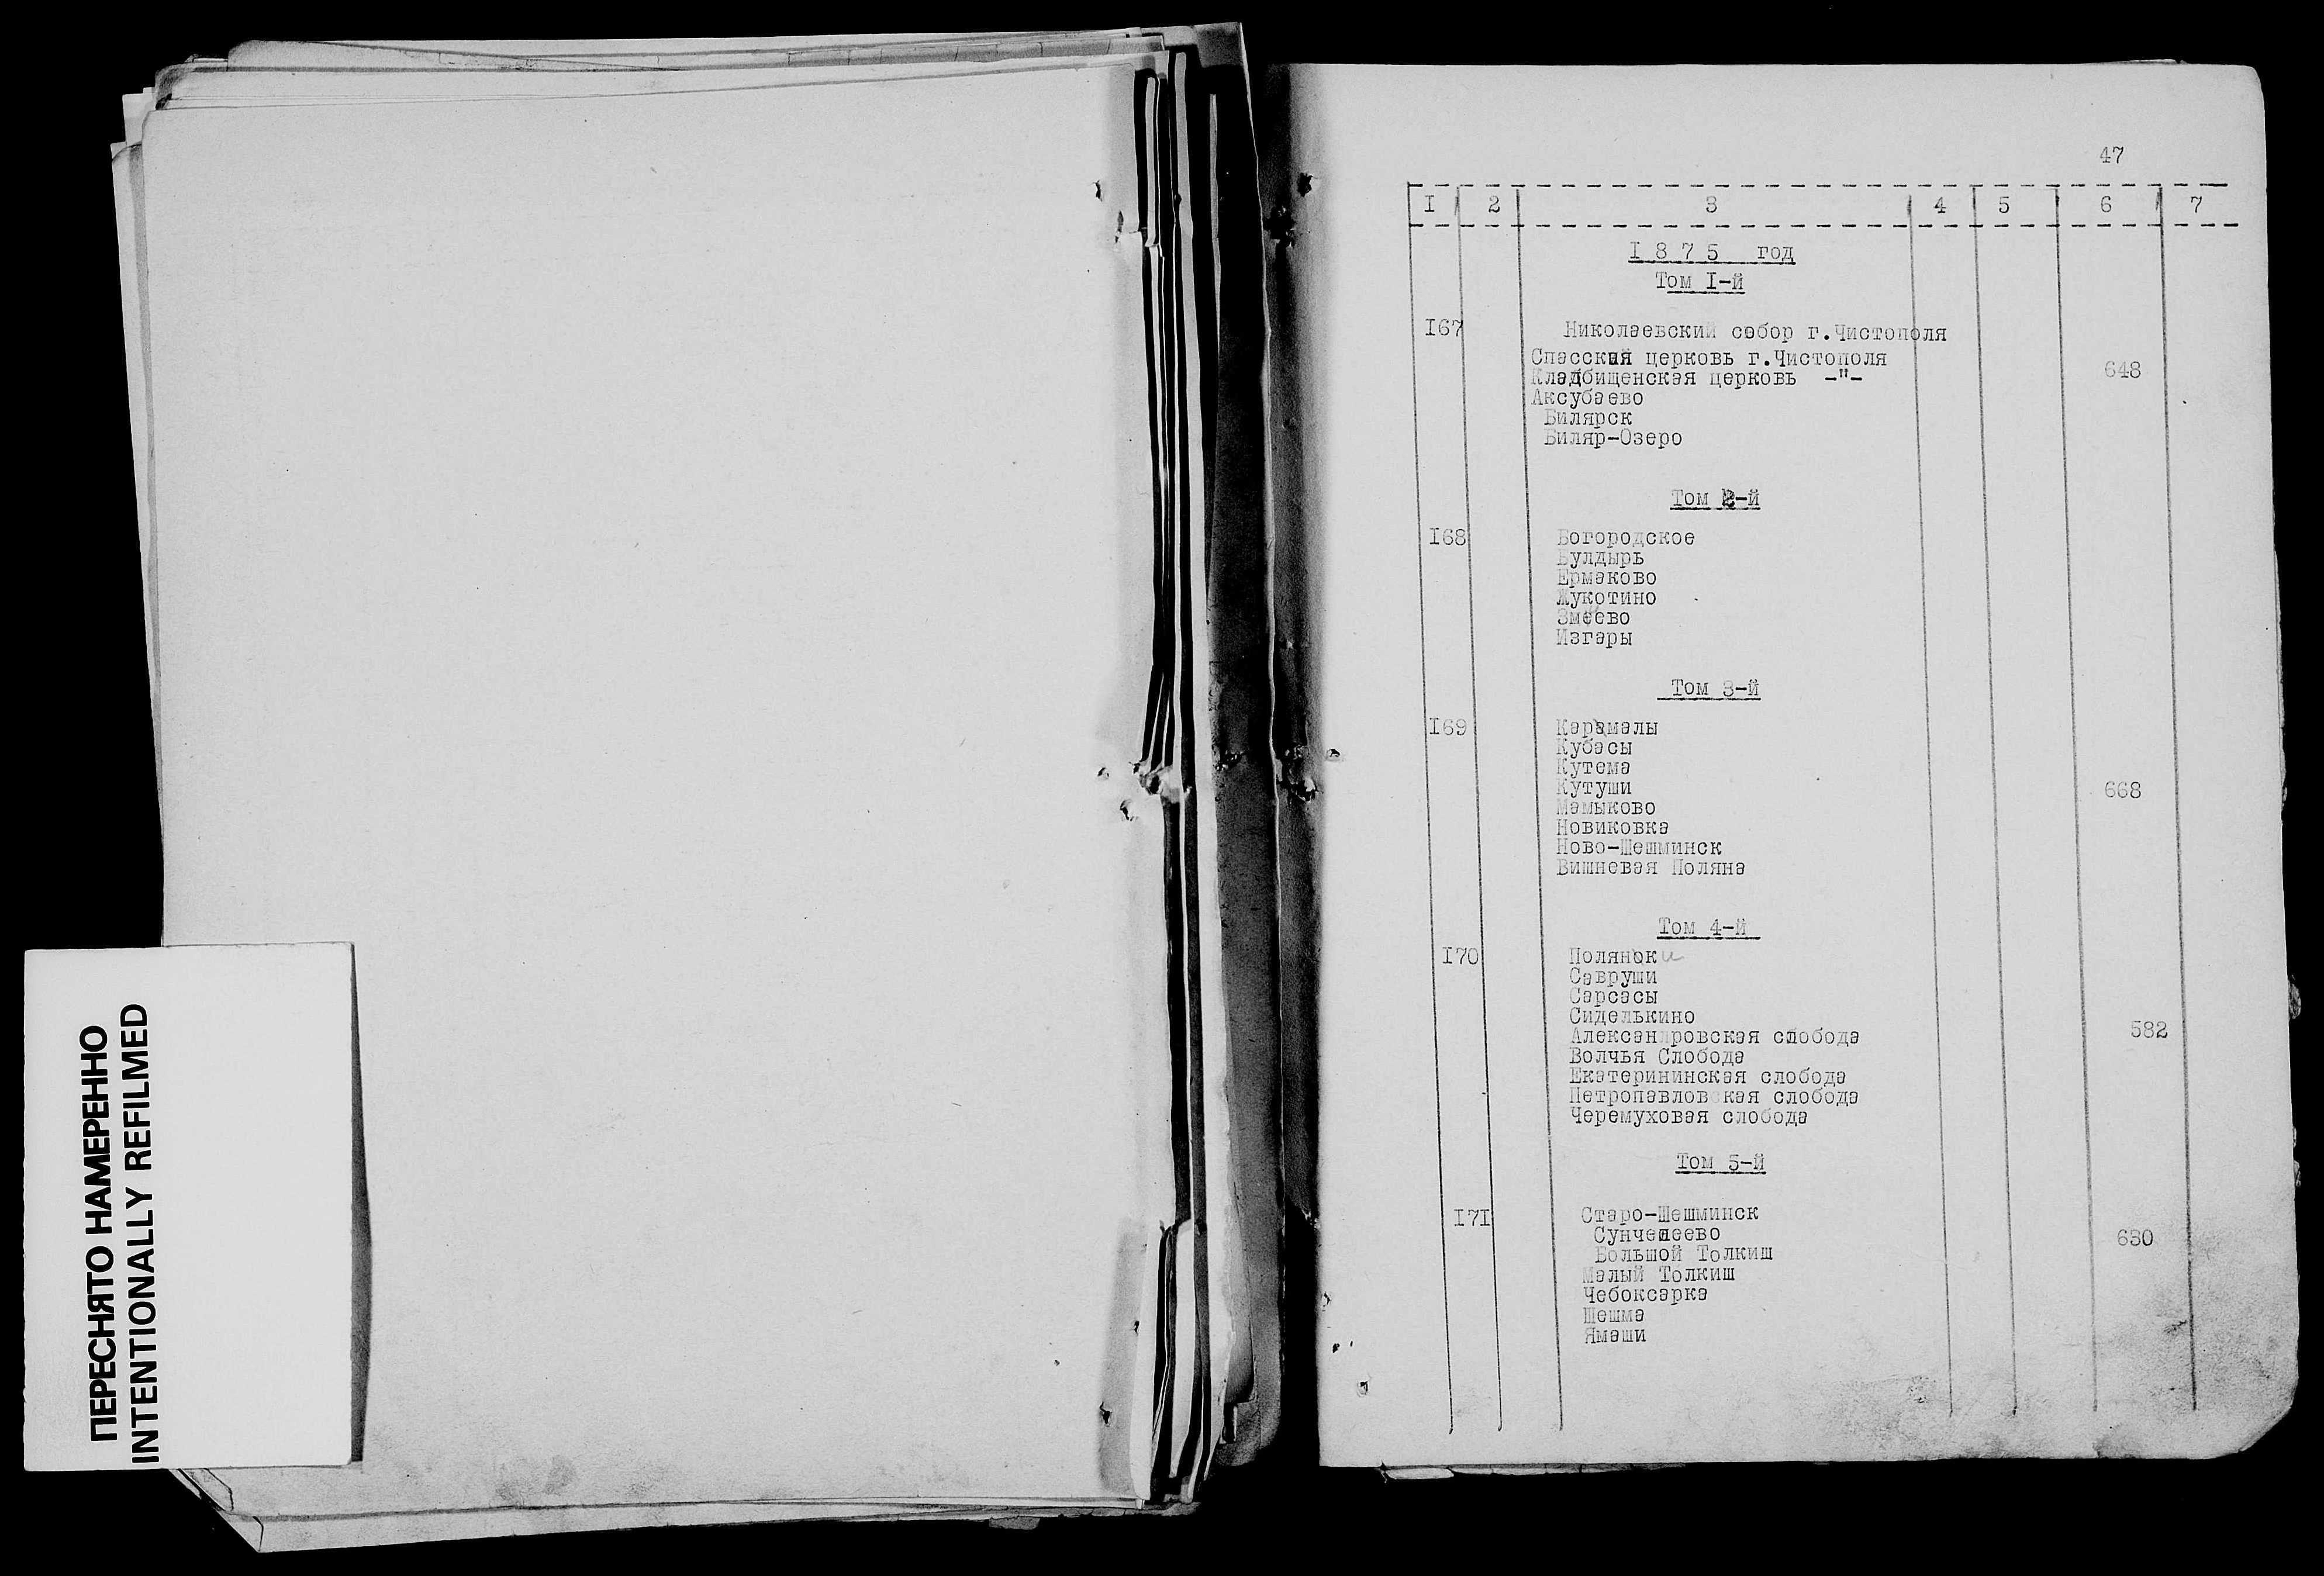 ПЕРЕСНЯТО НАМЕРЕННО
INTENTIONALLY REFILMED
47
I 2 3 4 5 6 7
I 8 7 5 год
Том I-й
I67 Николаевский собор г.Чистополя
Спасская церковь г.Чистополя
648
Кладбищенская церковь -"-
Аксубаево
Билярск
Биляр-Озеро
Том 2-й
I68 Богородское
Булдырь
Ермаково
Жукотино
Змеево
Изгары
Том 3-й
I69 Карамалы
Кубасы
Кутема
Кутуши 668
Мамыково
Новиковка
Ново-Шешминск
Вишневая Поляна
Том 4-й
I70 Полянки
Савруши
Сарсасы
Сиделькино
Александровская слобода 582
Волчья Слобода
Екатерининская слобода
Петропавловская слобода
Черемуховая слобода
Том 5-й
I7I Старо-Шешминск
Сунчелеево 630
Большой Толкиш
Малый Толкиш
Чебоксарка
Шешма
Ямаши